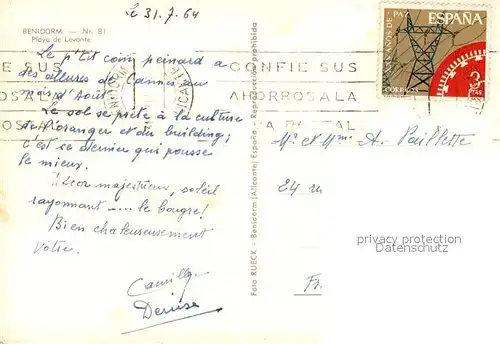 Le 31.7.64
BENIDORM. — Nr. 81
Playa de Levante
Le p'tit coin peinard a
des allures de Cannes au
mois d'Août.
Le sol se prête à la culture
de l'oranger et du building;
c'est ce dernier qui pousse
le mieux.
Décor majestueux, soleil
rayonnant .... le bougre!
Bien chaleureusement
vôtre.
Camille
Denise
Foto RUECK - Benidorm (Alicante) España - Reproducción prohibida
CONFIE SUS
AHORROS A LA
POSTAL
ALICANTE
AÑOS DE PAZ
ESPAÑA
CORREOS
3
PTAS
Mr et Mme A. Paillette
24
Fr.
privacy protection
Datenschutz